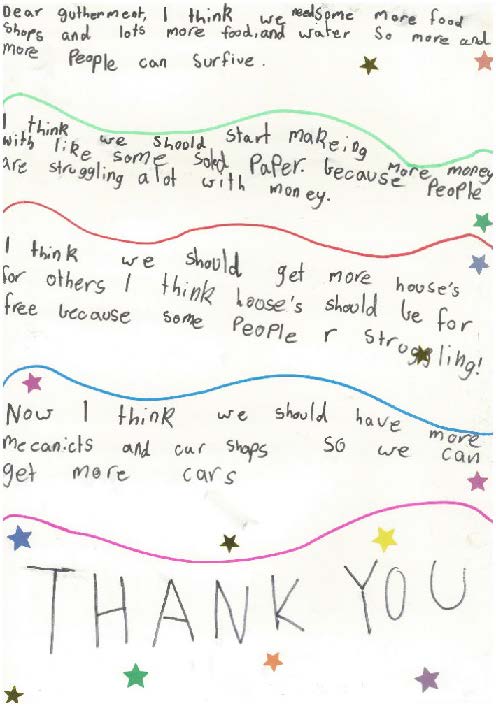 Dear gutherment, I think we need some more food
shops and lots more food, and water so more and
more people can surfive.
I think we should start makeing more money
with like some solid paper. because people
are struggling alot with money.
I think we should get more house's
for others I think hoose's should be for
free because some people r struggling!
Now I think we should have more
mecanicts and car shops so we can
get more cars
THANK YOU